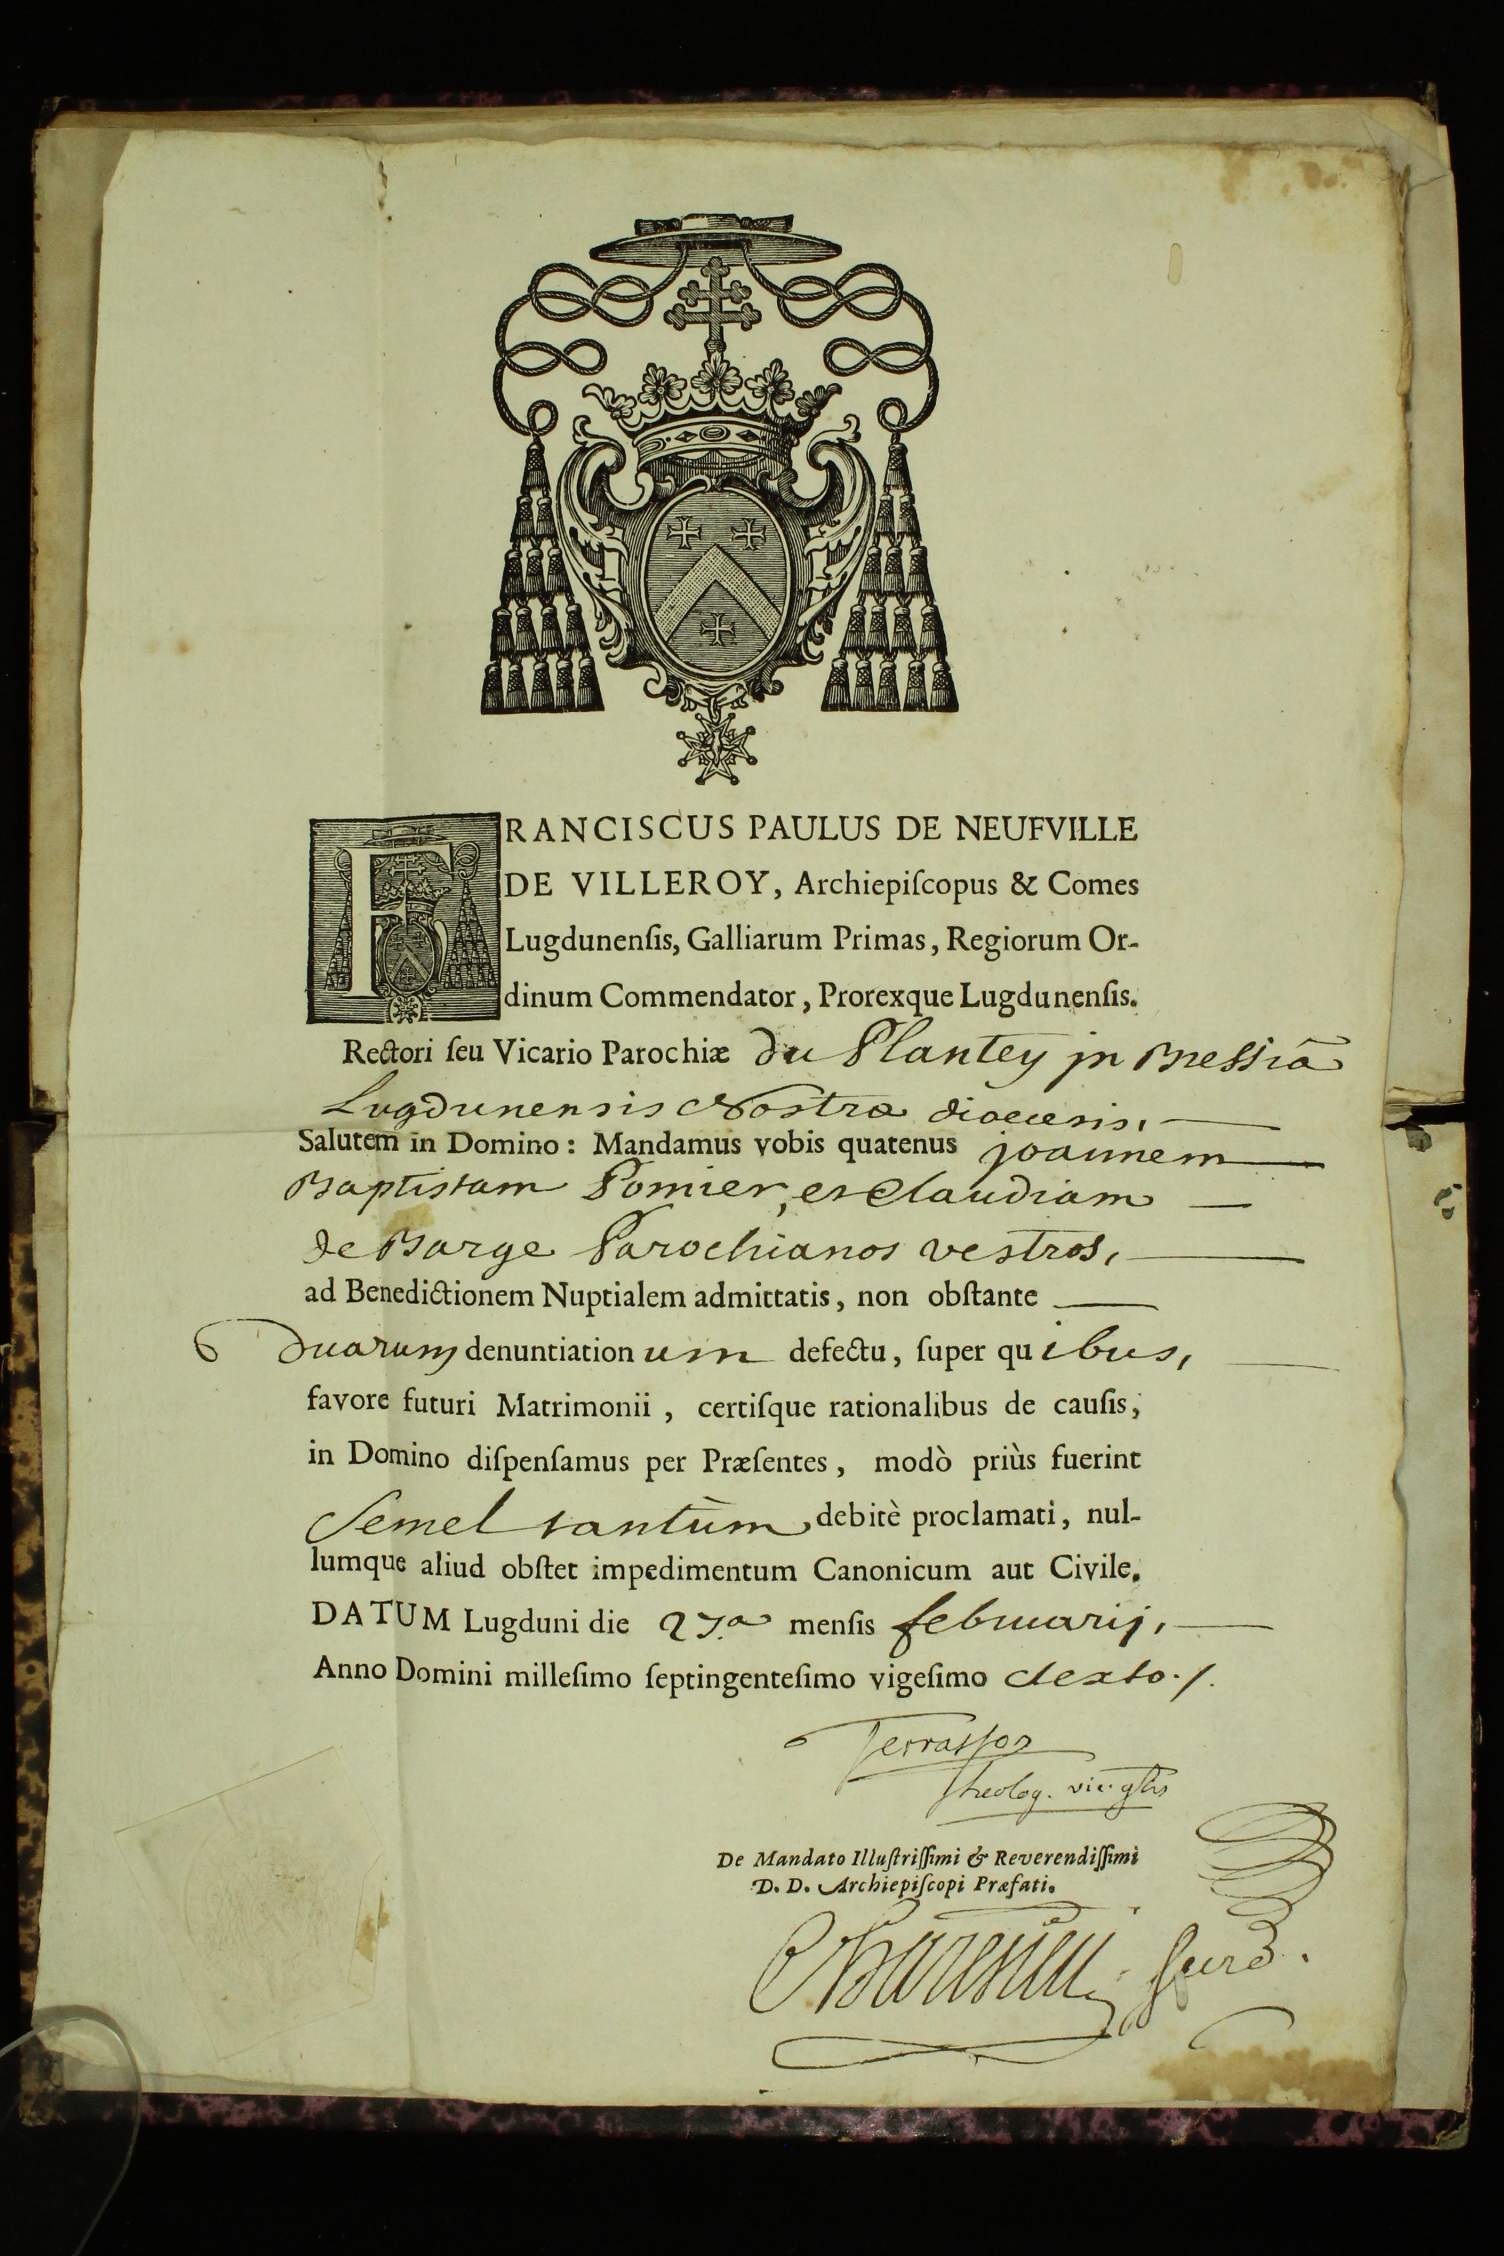 FRANCISCUS PAULUS DE NEUFVILLE
DE VILLEROY, Archiepiſcopus & Comes
Lugdunenſis, Galliarum Primas, Regiorum Or-
dinum Commendator, Prorexque Lugdunenſis.
Rectori ſeu Vicario Parochiæ du Plantey jn Bressiâ
Lugdunensis Nostræ dioecesis,
Salutem in Domino: Mandamus vobis quatenus joannem
Baptistam Pomier, et Claudiam
de Barge Parochianos vestros,
ad Benedictionem Nuptialem admittatis, non obſtante
duarum denuntiationum defectu, ſuper quibus,
favore futuri Matrimonii, certiſque rationalibus de cauſis,
in Domino diſpenſamus per Præſentes, modò priùs fuerint
Semel tantùm debitè proclamati, nul-
lumque aliud obſtet impedimentum Canonicum aut Civile.
DATUM Lugduni die 27.a menſis februarij,
Anno Domini milleſimo ſeptingenteſimo vigeſimo sexto./.
Terrasson
theolog. vic. glis
De Mandato Illuſtriſſimi & Reverendiſſimi
D. D. Archiepiſcopi Præfati.